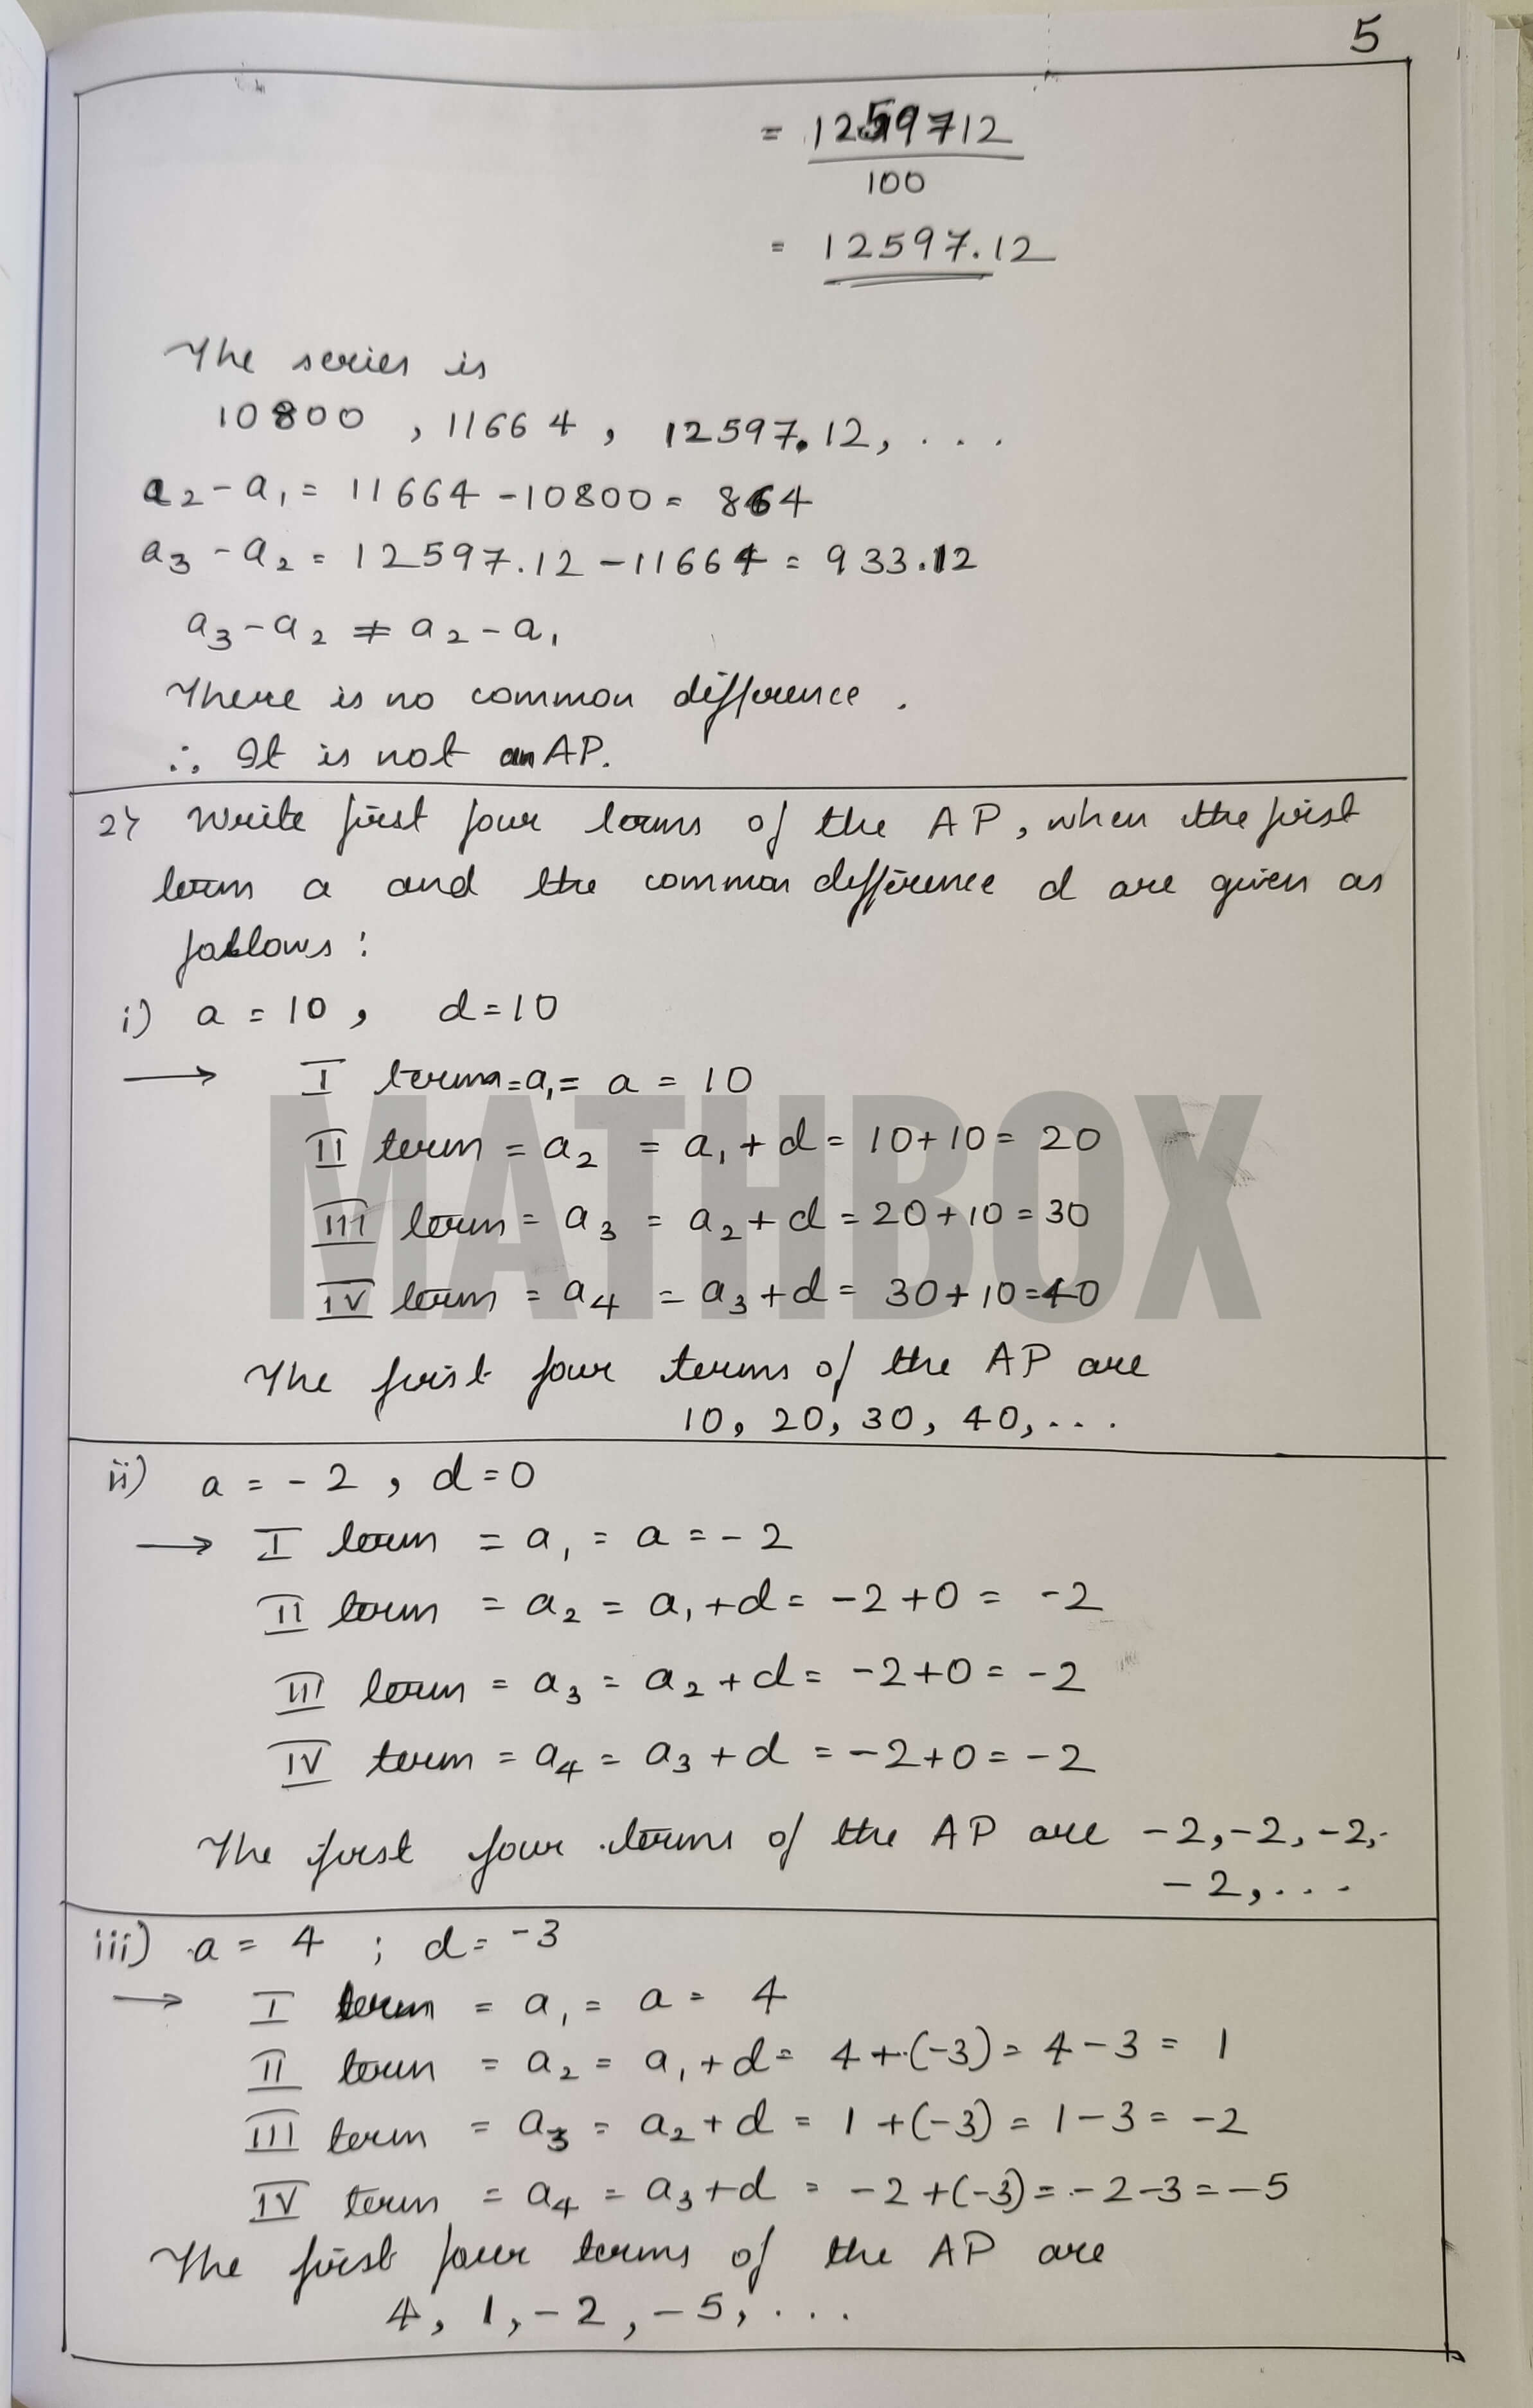 5
= 1259712
100
= 12597.12
The series is
10800 , 11664 , 12597.12, . . .
a₂ - a₁ = 11664 - 10800 = 864
a₃ - a₂ = 12597.12 - 11664 = 933.12
a₃ - a₂ ≠ a₂ - a₁
There is no common difference .
∴ It is not an AP.
2) Write first four terms of the AP, when the first
term a and the common difference d are given as
follows :
i) a = 10 , d = 10
→ I term = a₁ = a = 10
II term = a₂ = a₁ + d = 10 + 10 = 20
III term = a₃ = a₂ + d = 20 + 10 = 30
IV term = a₄ = a₃ + d = 30 + 10 = 40
MATHBOX
The first four terms of the AP are
10, 20, 30, 40, . . .
ii) a = - 2 , d = 0
→ I term = a₁ = a = - 2
II term = a₂ = a₁ + d = - 2 + 0 = - 2
III term = a₃ = a₂ + d = - 2 + 0 = - 2
IV term = a₄ = a₃ + d = - 2 + 0 = - 2
The first four terms of the AP are - 2, - 2, - 2,
- 2, . . .
iii) a = 4 ; d = - 3
→ I term = a₁ = a = 4
II term = a₂ = a₁ + d = 4 + (-3) = 4 - 3 = 1
III term = a₃ = a₂ + d = 1 + (-3) = 1 - 3 = - 2
IV term = a₄ = a₃ + d = - 2 + (-3) = - 2 - 3 = - 5
The first four terms of the AP are
4, 1, - 2, - 5, . . .